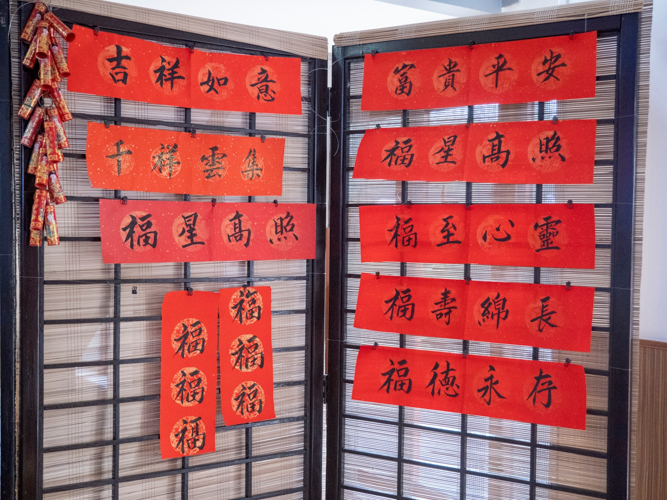 吉祥如意
千祥雲集
福星高照
福福福
福福福
富貴平安
福星高照
福至心靈
福壽綿長
福德永存